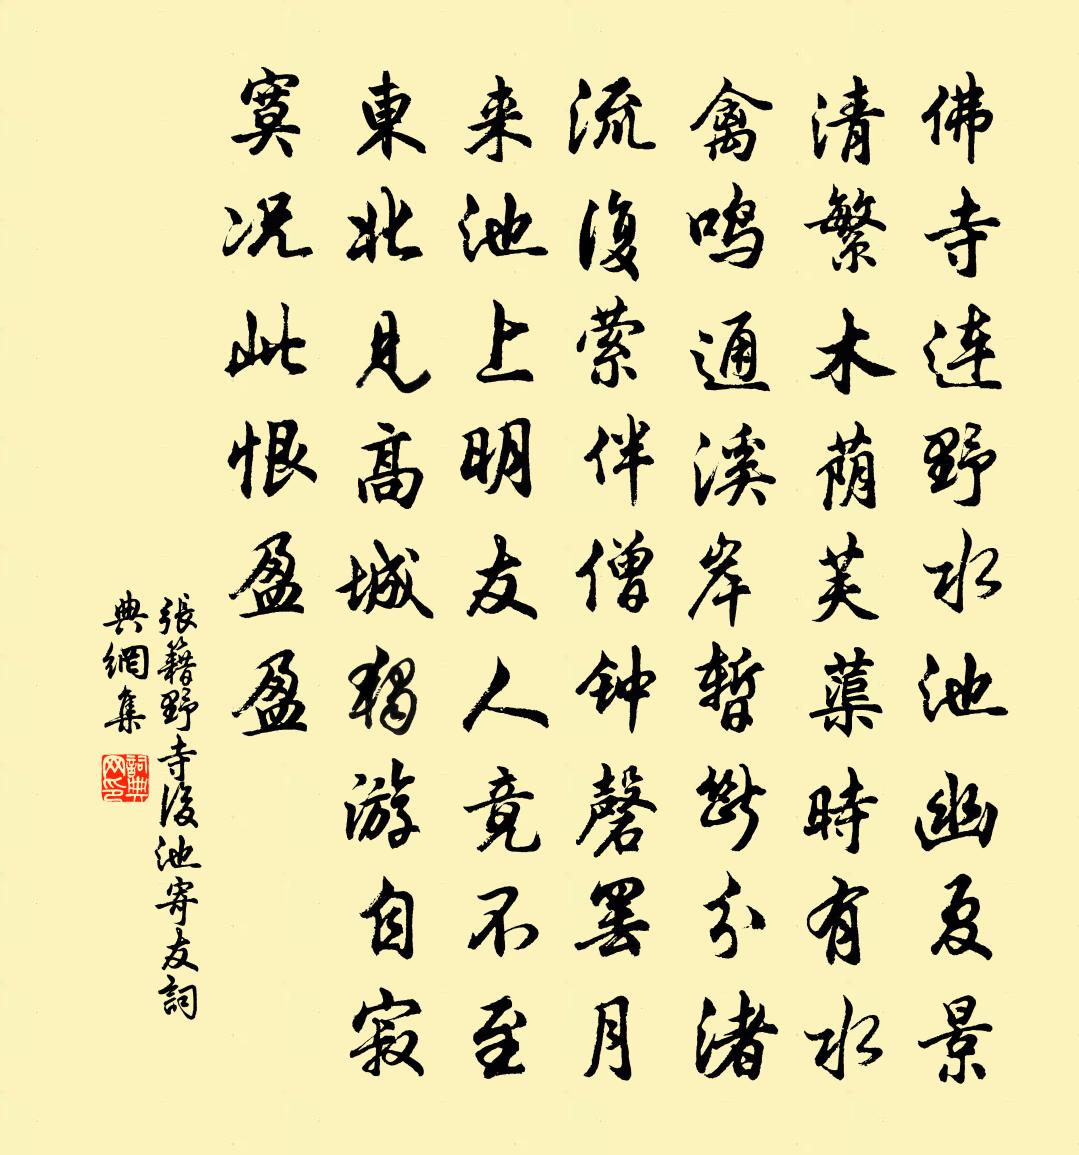 佛寺連野水池幽夏景
清繁木荫芙蕖時有水
禽鳴通溪岸暫断分渚
流復萦伴僧钟磬罢月
来池上明友人竟不至
東北見高城独游自寂
寞况此恨盈盈
張籍野寺後池寄友詞
典網集
詞典
网印